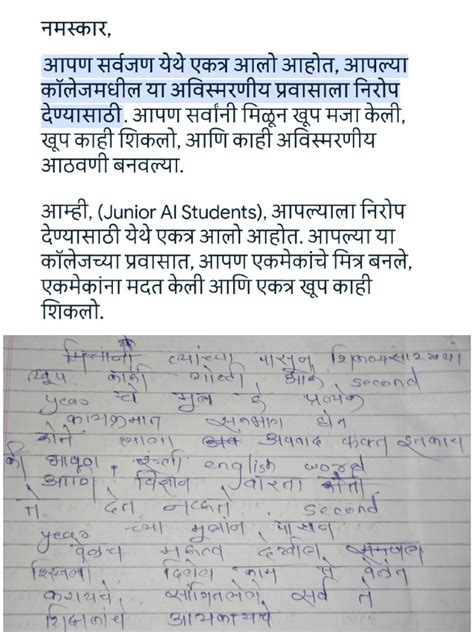 नमस्कार,
आपण सर्वजण येथे एकत्र आलो आहोत, आपल्या
कॉलेजमधील या अविस्मरणीय प्रवासाला निरोप
देण्यासाठी. आपण सर्वांनी मिळून खूप मजा केली,
खूप काही शिकलो, आणि काही अविस्मरणीय
आठवणी बनवल्या.
आम्ही, (Junior AI Students), आपल्याला निरोप
देण्यासाठी येथे एकत्र आलो आहोत. आपल्या या
कॉलेजच्या प्रवासात, आपण एकमेकांचे मित्र बनले,
एकमेकांना मदत केली आणि एकत्र खूप काही
शिकलो.
मित्रांनो त्यांच्या पासून
खूप काही गोष्टी second
year चे मुल हे प्रत्येक
होत
अपवाद फक्त इतकाच
की english
आणि विज्ञान
ते देत नव्हते. second
year च्या मुलांन पासन
वेळेच महत्व देखील
दिलेल काम वेळेत
करायचे, सांगितलेले सर्व ते
शिक्षकांचे